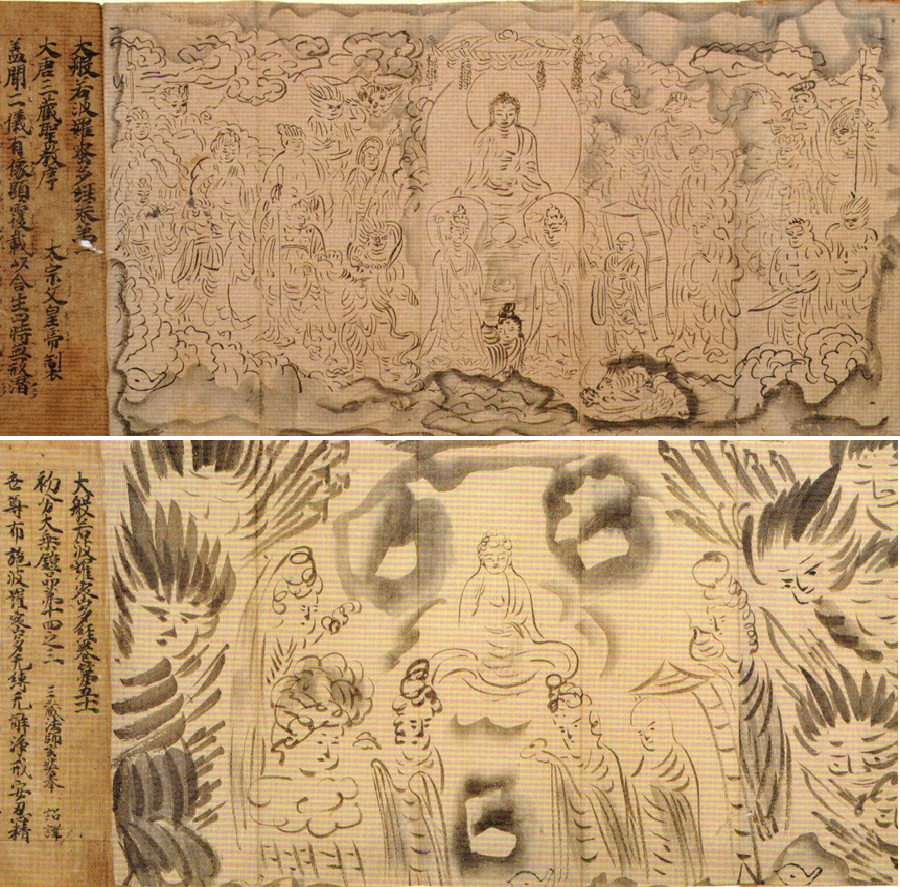 大般若波羅蜜多経巻第一
大唐三蔵聖教序 太宗文皇帝製
盖聞二儀有像顯覆載以含生四時無形潜
大般若波羅蜜多経巻第五十一
初分大乗鎧品第十四之三 三蔵法師玄奘奉 詔譯
世尊布施波羅蜜多无縛无解浄戒安忍精